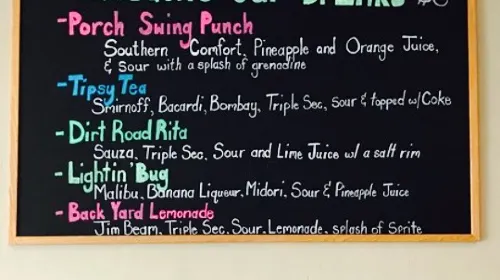 -Porch Swing Punch
Southern Comfort, Pineapple and Orange Juice,
& Sour with a splash of grenadine
-Tipsy Tea
Smirnoff, Bacardi, Bombay, Triple Sec, sour & topped w/Coke
-Dirt Road Rita
Sauza, Triple Sec, Sour and Lime Juice w/ a salt rim
-Lightin' Bug
Malibu, Banana Liqueur, Midori, Sour & Pineapple Juice
-Back Yard Lemonade
Jim Beam, Triple Sec, Sour, Lemonade, splash of Sprite